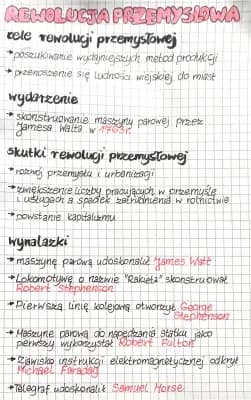 REWOLUCJA PRZEMYSŁOWA
cele rewolucji przemysłowej
*poszukiwanie wydajniejszych metod produkcji
*przenoszenie się ludności wiejskiej do miast
wydarzenie
*skonstruowanie maszyny parowej przez
Jamesa Watta w 1763r.
skutki rewolucji przemysłowej
*rozwój przemysłu i urbanizacji
*zwiększenie liczby pracujących w przemyśle
i usługach a spadek zatrudnienia w rolnictwie
*powstanie kapitalizmu
wynalazki
*maszynę parową udoskonalił James Watt
*Lokomotywę o nazwie "Rakieta" skonstruował
Robert Stephenson
*Pierwszą linię kolejową otworzył George
Stephenson
*Maszynę parową do napędzania statku jako
pierwszy wykorzystał Robert Fulton
*Zjawisko instrukcji elektromagnetycznej odkrył
Michael Faraday
*Telegraf udoskonalił Samuel Morse